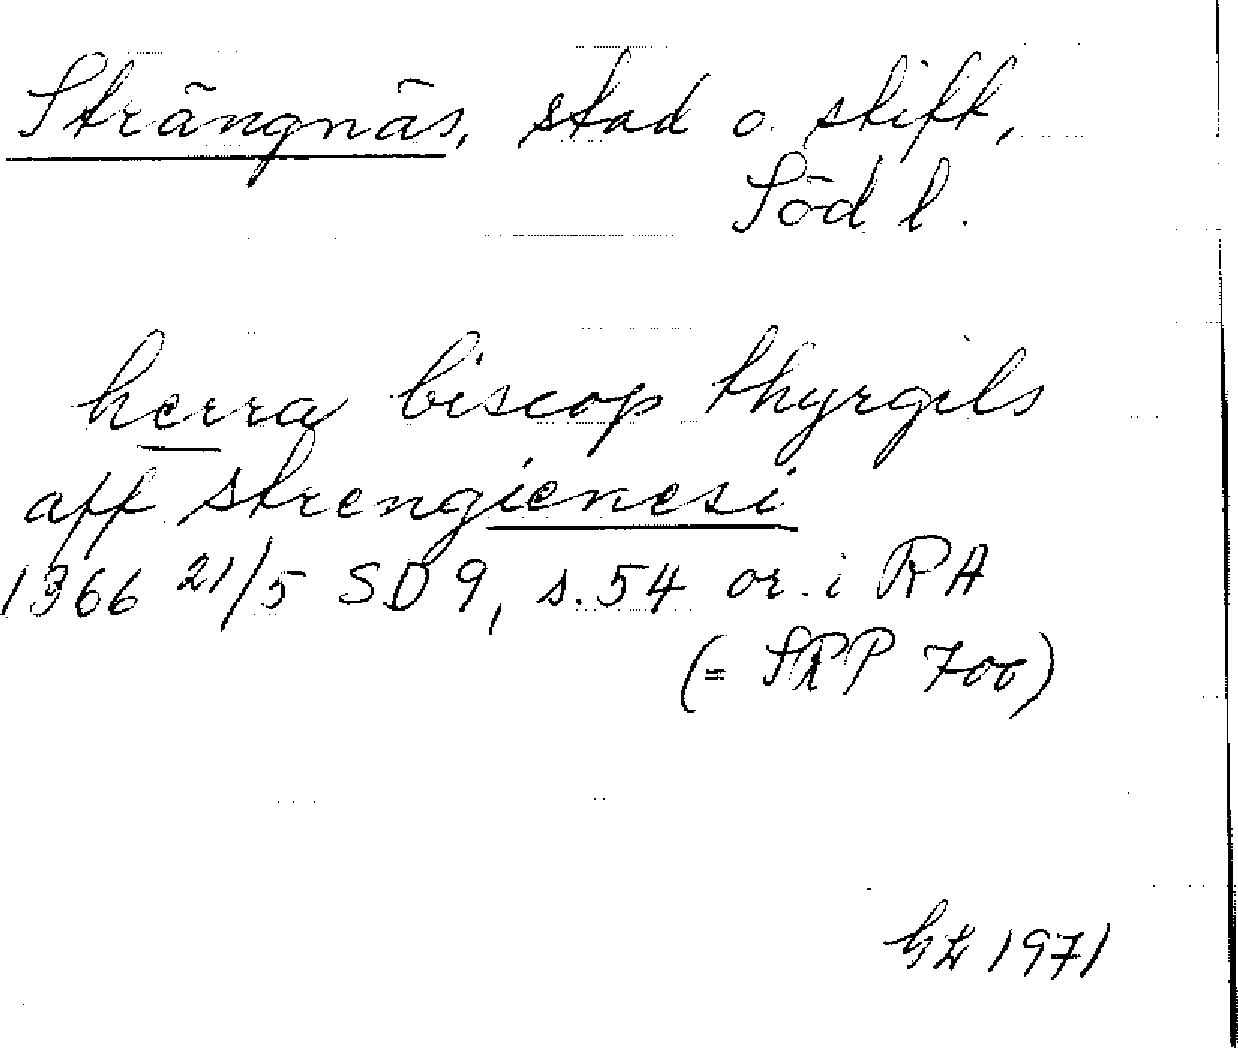 Strängnäs, stad o. stift,
Söd l.
herra biscop thyrgils
aff strengienesi
1366 21/5 SD 9, s. 54 or. i RA
(= SRP 700)
1971